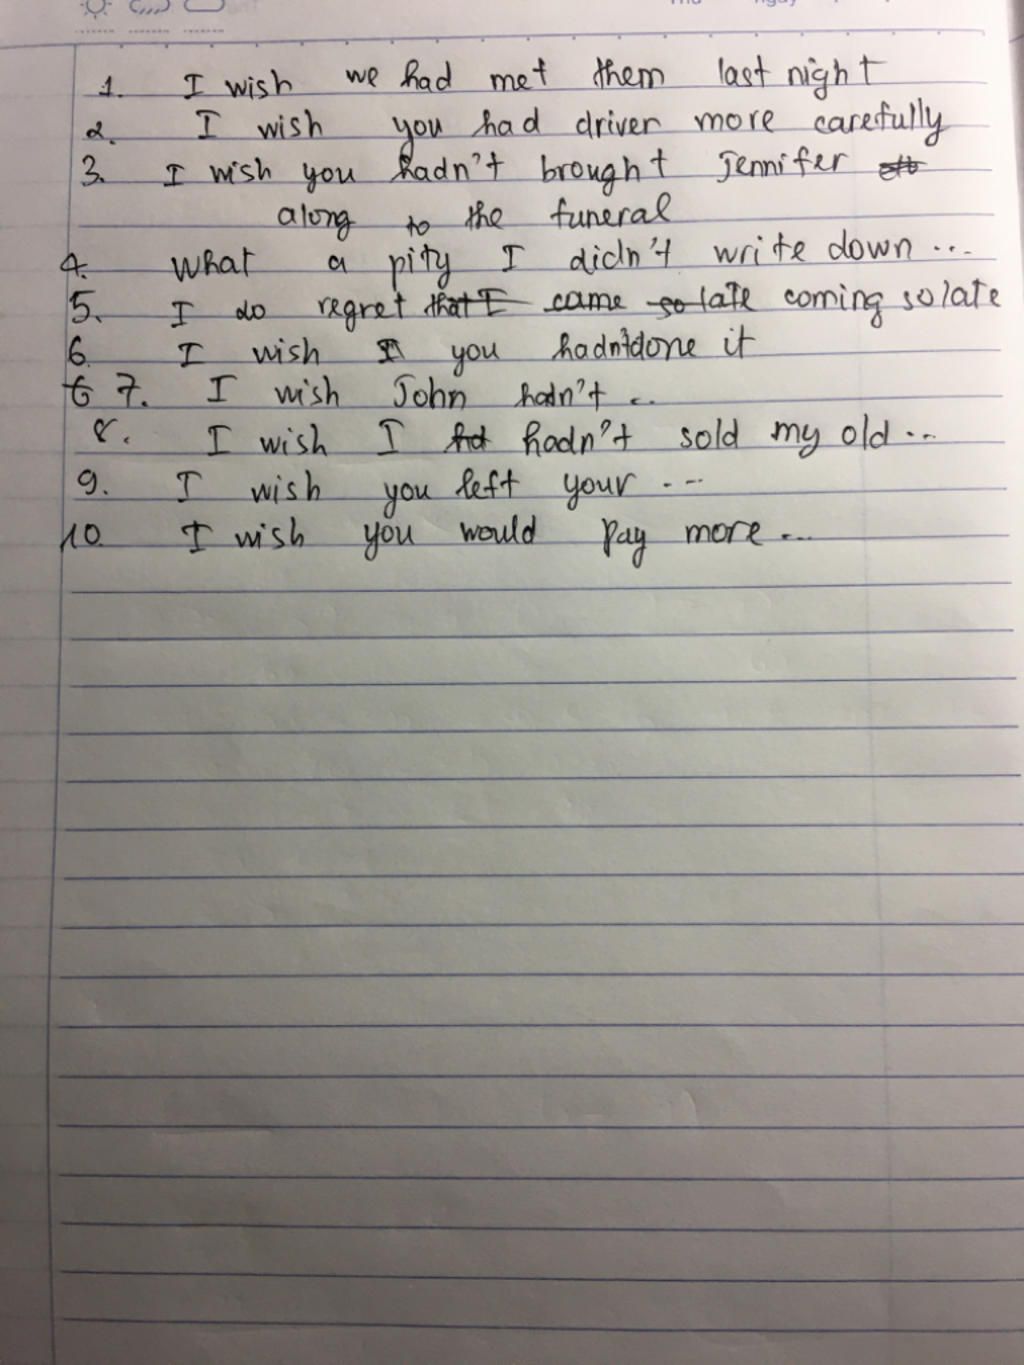 1. I wish we had met them last night
2. I wish you had driver more carefully
3. I wish you hadn't brought Jennifer
along to the funeral
4. What a pity I didn't write down ...
5. I do regret that I came so late coming so late
6. I wish I you hadn't done it
6 7. I wish John hadn't ..
8. I wish I hadn't sold my old ...
9. I wish you left your ---
10. I wish you would pay more ...